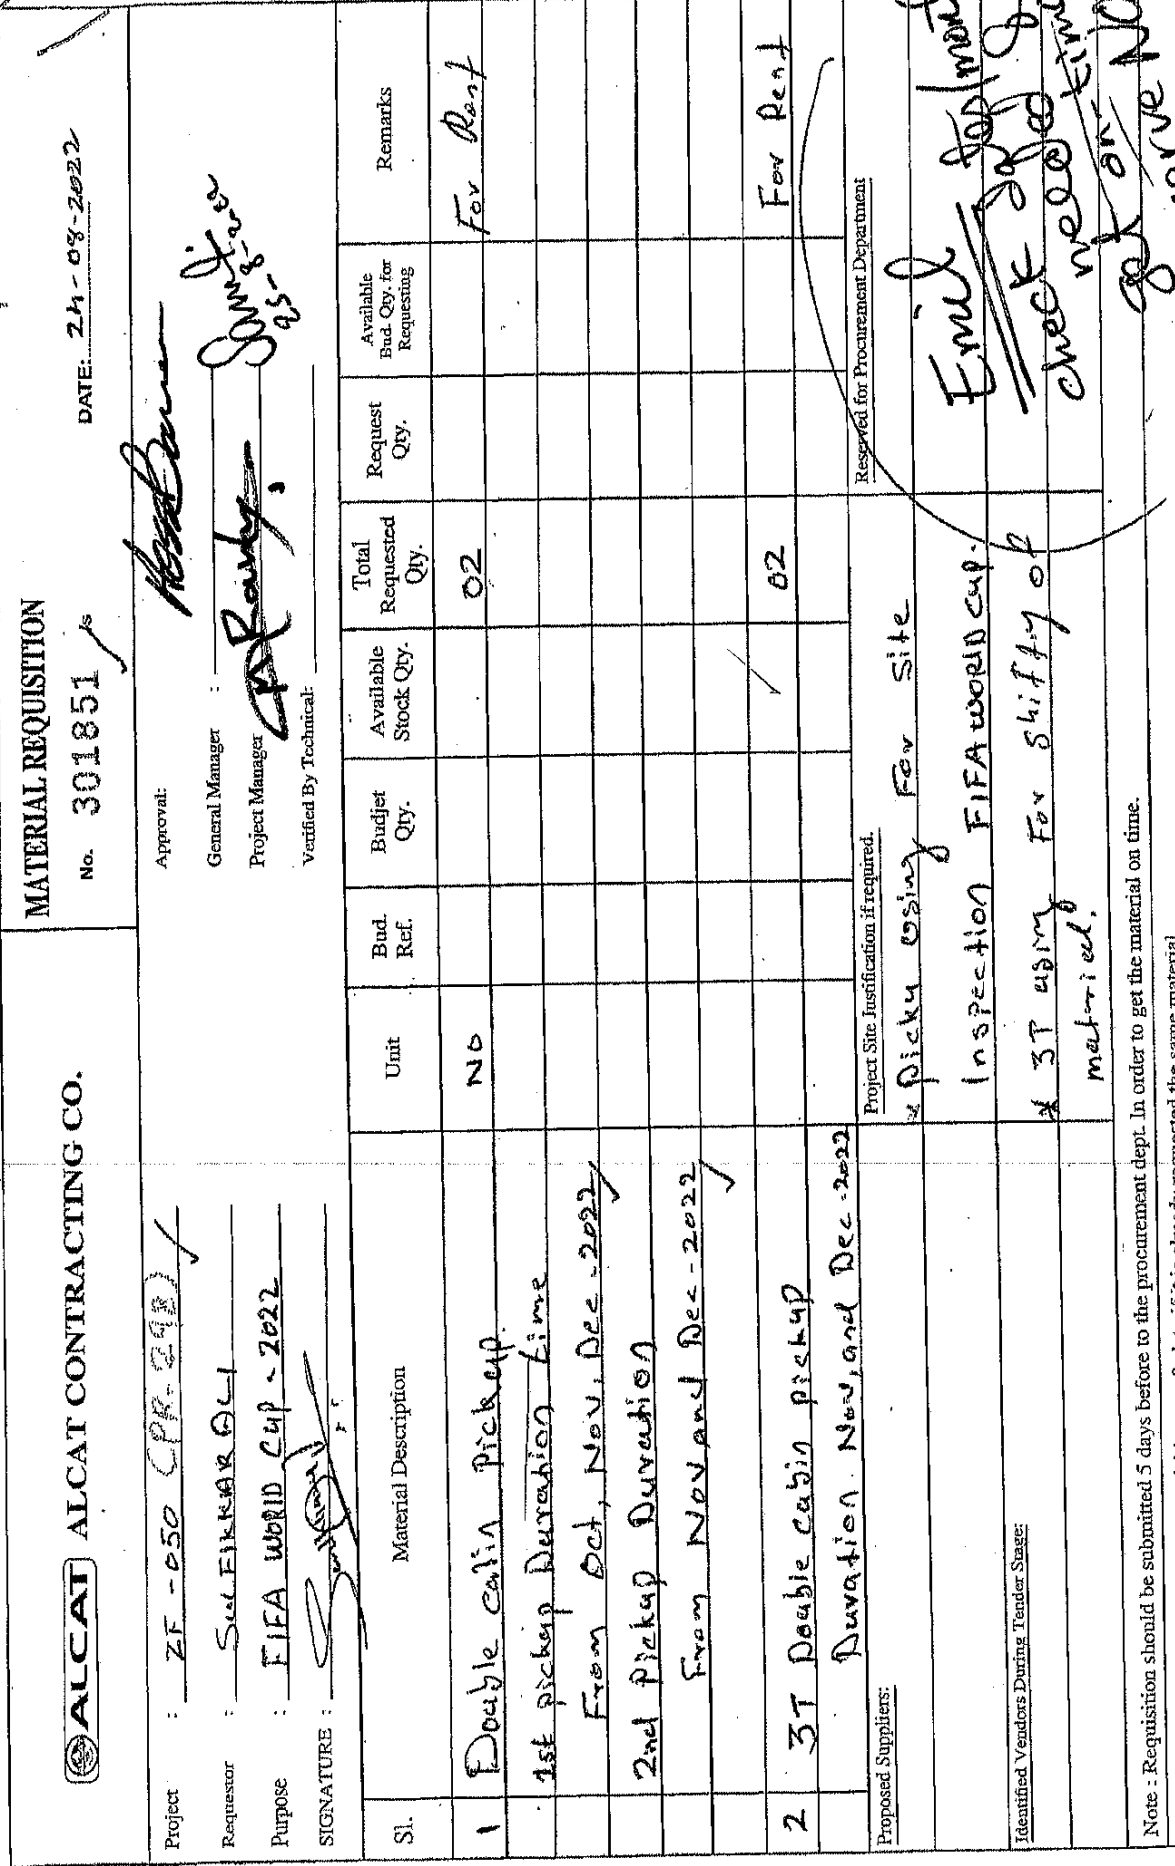 ALCAT ALCAT CONTRACTING CO.
MATERIAL REQUISITION
No. 301851 /s
DATE: 24-08-2022
Project : ZF-050 (PR-298)
Requestor : SULFIKKAR ALI
Purpose : FIFA WORLD CUP - 2022
SIGNATURE :
Approval:
General Manager :
Project Manager
Verified By Technical:
Sl. Material Description Unit Bud. Ref. Budjet Qty. Available Stock Qty. Total Requested Qty. Request Qty. Available Bud. Qty. for Requesting Remarks
1 Double cabin Pickup. NO 02 For Rent
1st pickup Duration time
From Oct, Nov, Dec - 2022
2nd Pickup Duration
From Nov and Dec - 2022
2 3T Double cabin pickup 02 For Rent
Duration. Nov, and Dec - 2022
Proposed Suppliers:
Identified Vendors During Tender Stage:
Project Site Justification if required.
* Picku using For Site
Inspection FIFA WORLD cup.
* 3T using For shifty of
material.
Reserved for Procurement Department
Emil
check
needed time
get on
Note : Requisition should be submitted 5 days before to the procurement dept. In order to get the material on time.
requested the same material